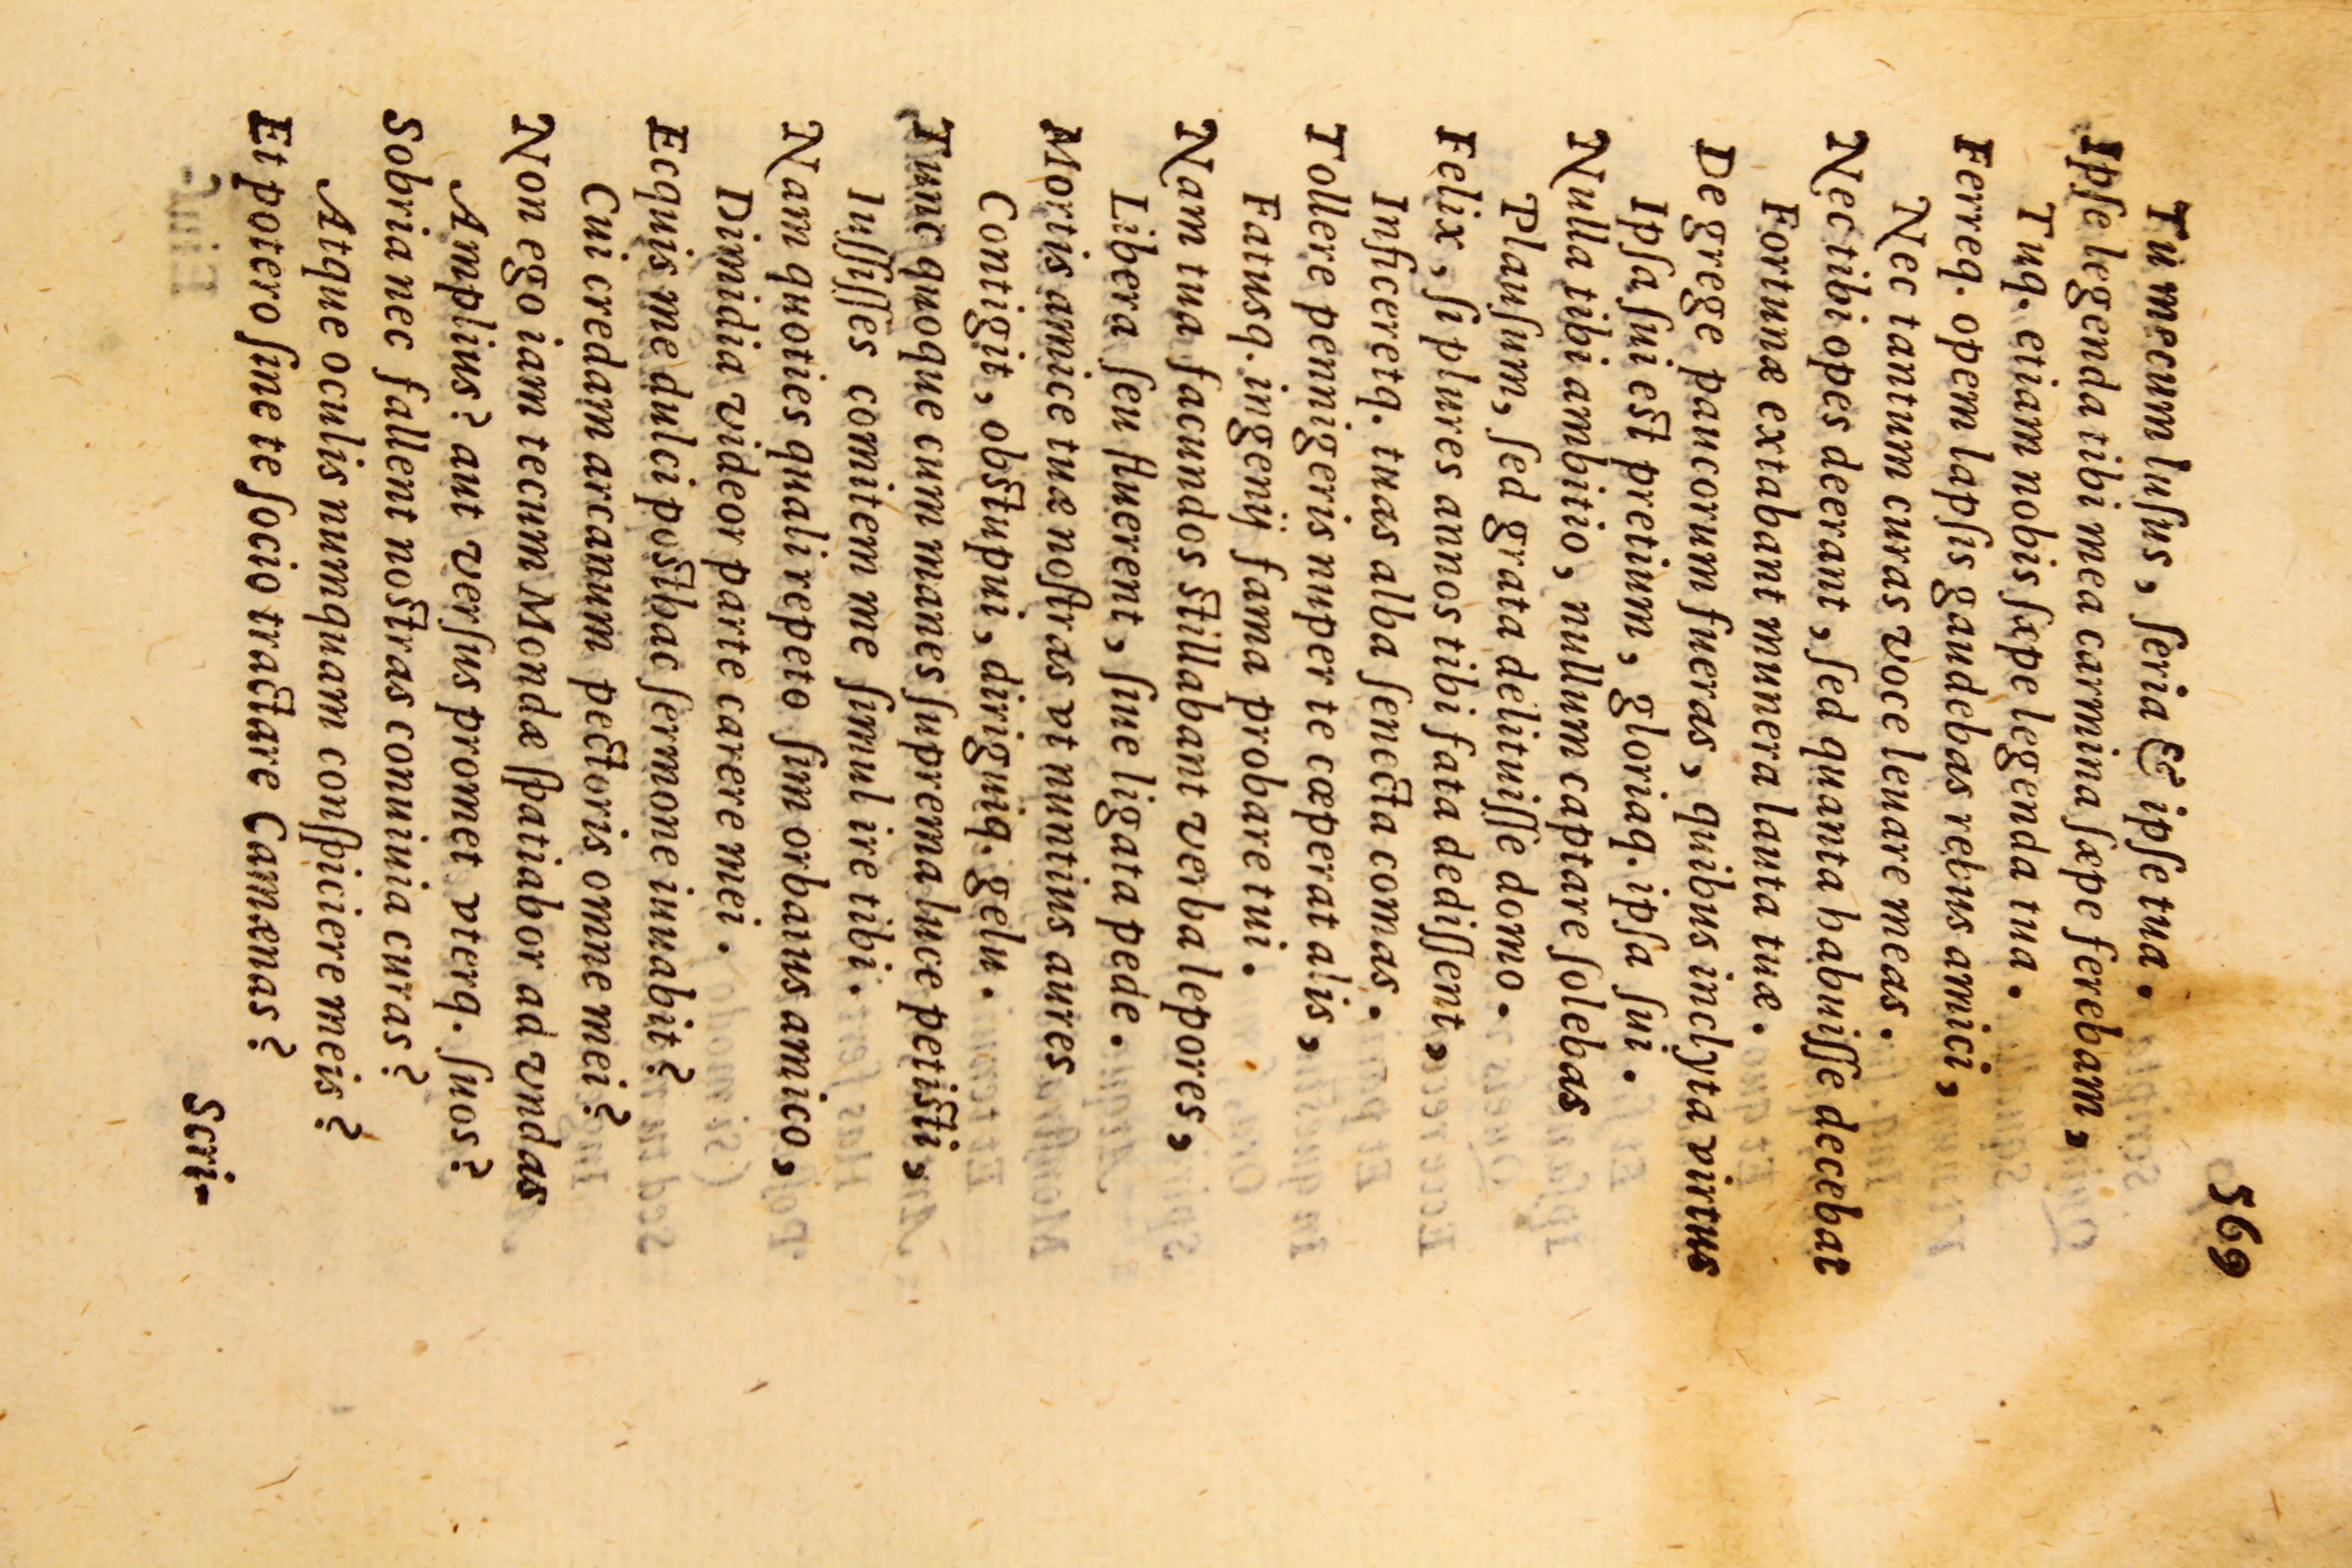 569
Tu mecum luſus, ſeria & ipſe tua.
Ipſe legenda tibi mea carmina ſæpe ferebam,
Tuq. etiam nobis ſæpe legenda tua.
Ferreq. opem lapſis gaudebas rebus amici,
Nec tantum curas voce leuare meas.
Nec tibi opes deerant, ſed quanta habuiſſe decebat
Fortunæ extabant munera lauta tuæ.
De grege paucorum fueras, quibus inclyta virtus
Ipſa ſui est pretium, gloriaq. ipſa ſui.
Nulla tibi ambitio, nullum captare ſolebas
Plauſum, ſed grata delituiſſe domo.
Felix, ſi plures annos tibi fata dediſſent,
Inficeretq. tuas alba ſenecta comas.
Tollere pennigeris nuper te cæperat alis,
Fatusq. ingenij fama probare tui.
Nam tua facundos stillabant verba lepores,
Libera ſeu fluerent, ſine ligata pede.
Mortis amice tuæ noſtras vt nuntius aures
Contigit, obstupui, diriguiq. gelu.
Tunc quoque cum manes ſuprema luce petisti,
Iuſſiſſes comitem me ſimul ire tibi.
Nam quoties quali repeto ſim orbatus amico,
Dimidia videor parte carere mei.
Ecquis me dulci posthac ſermone iuuabit?
Cui credam arcanum pectoris omne mei?
Non ego iam tecum Mondæ ſpatiabor ad vndas
Amplius? aut verſus promet vterq. ſuos?
Sobria nec fallent nostras conuiuia curas?
Atque oculis numquam conſpiciere meis?
Et potero ſine te ſocio tractare Camænas?
Scri-